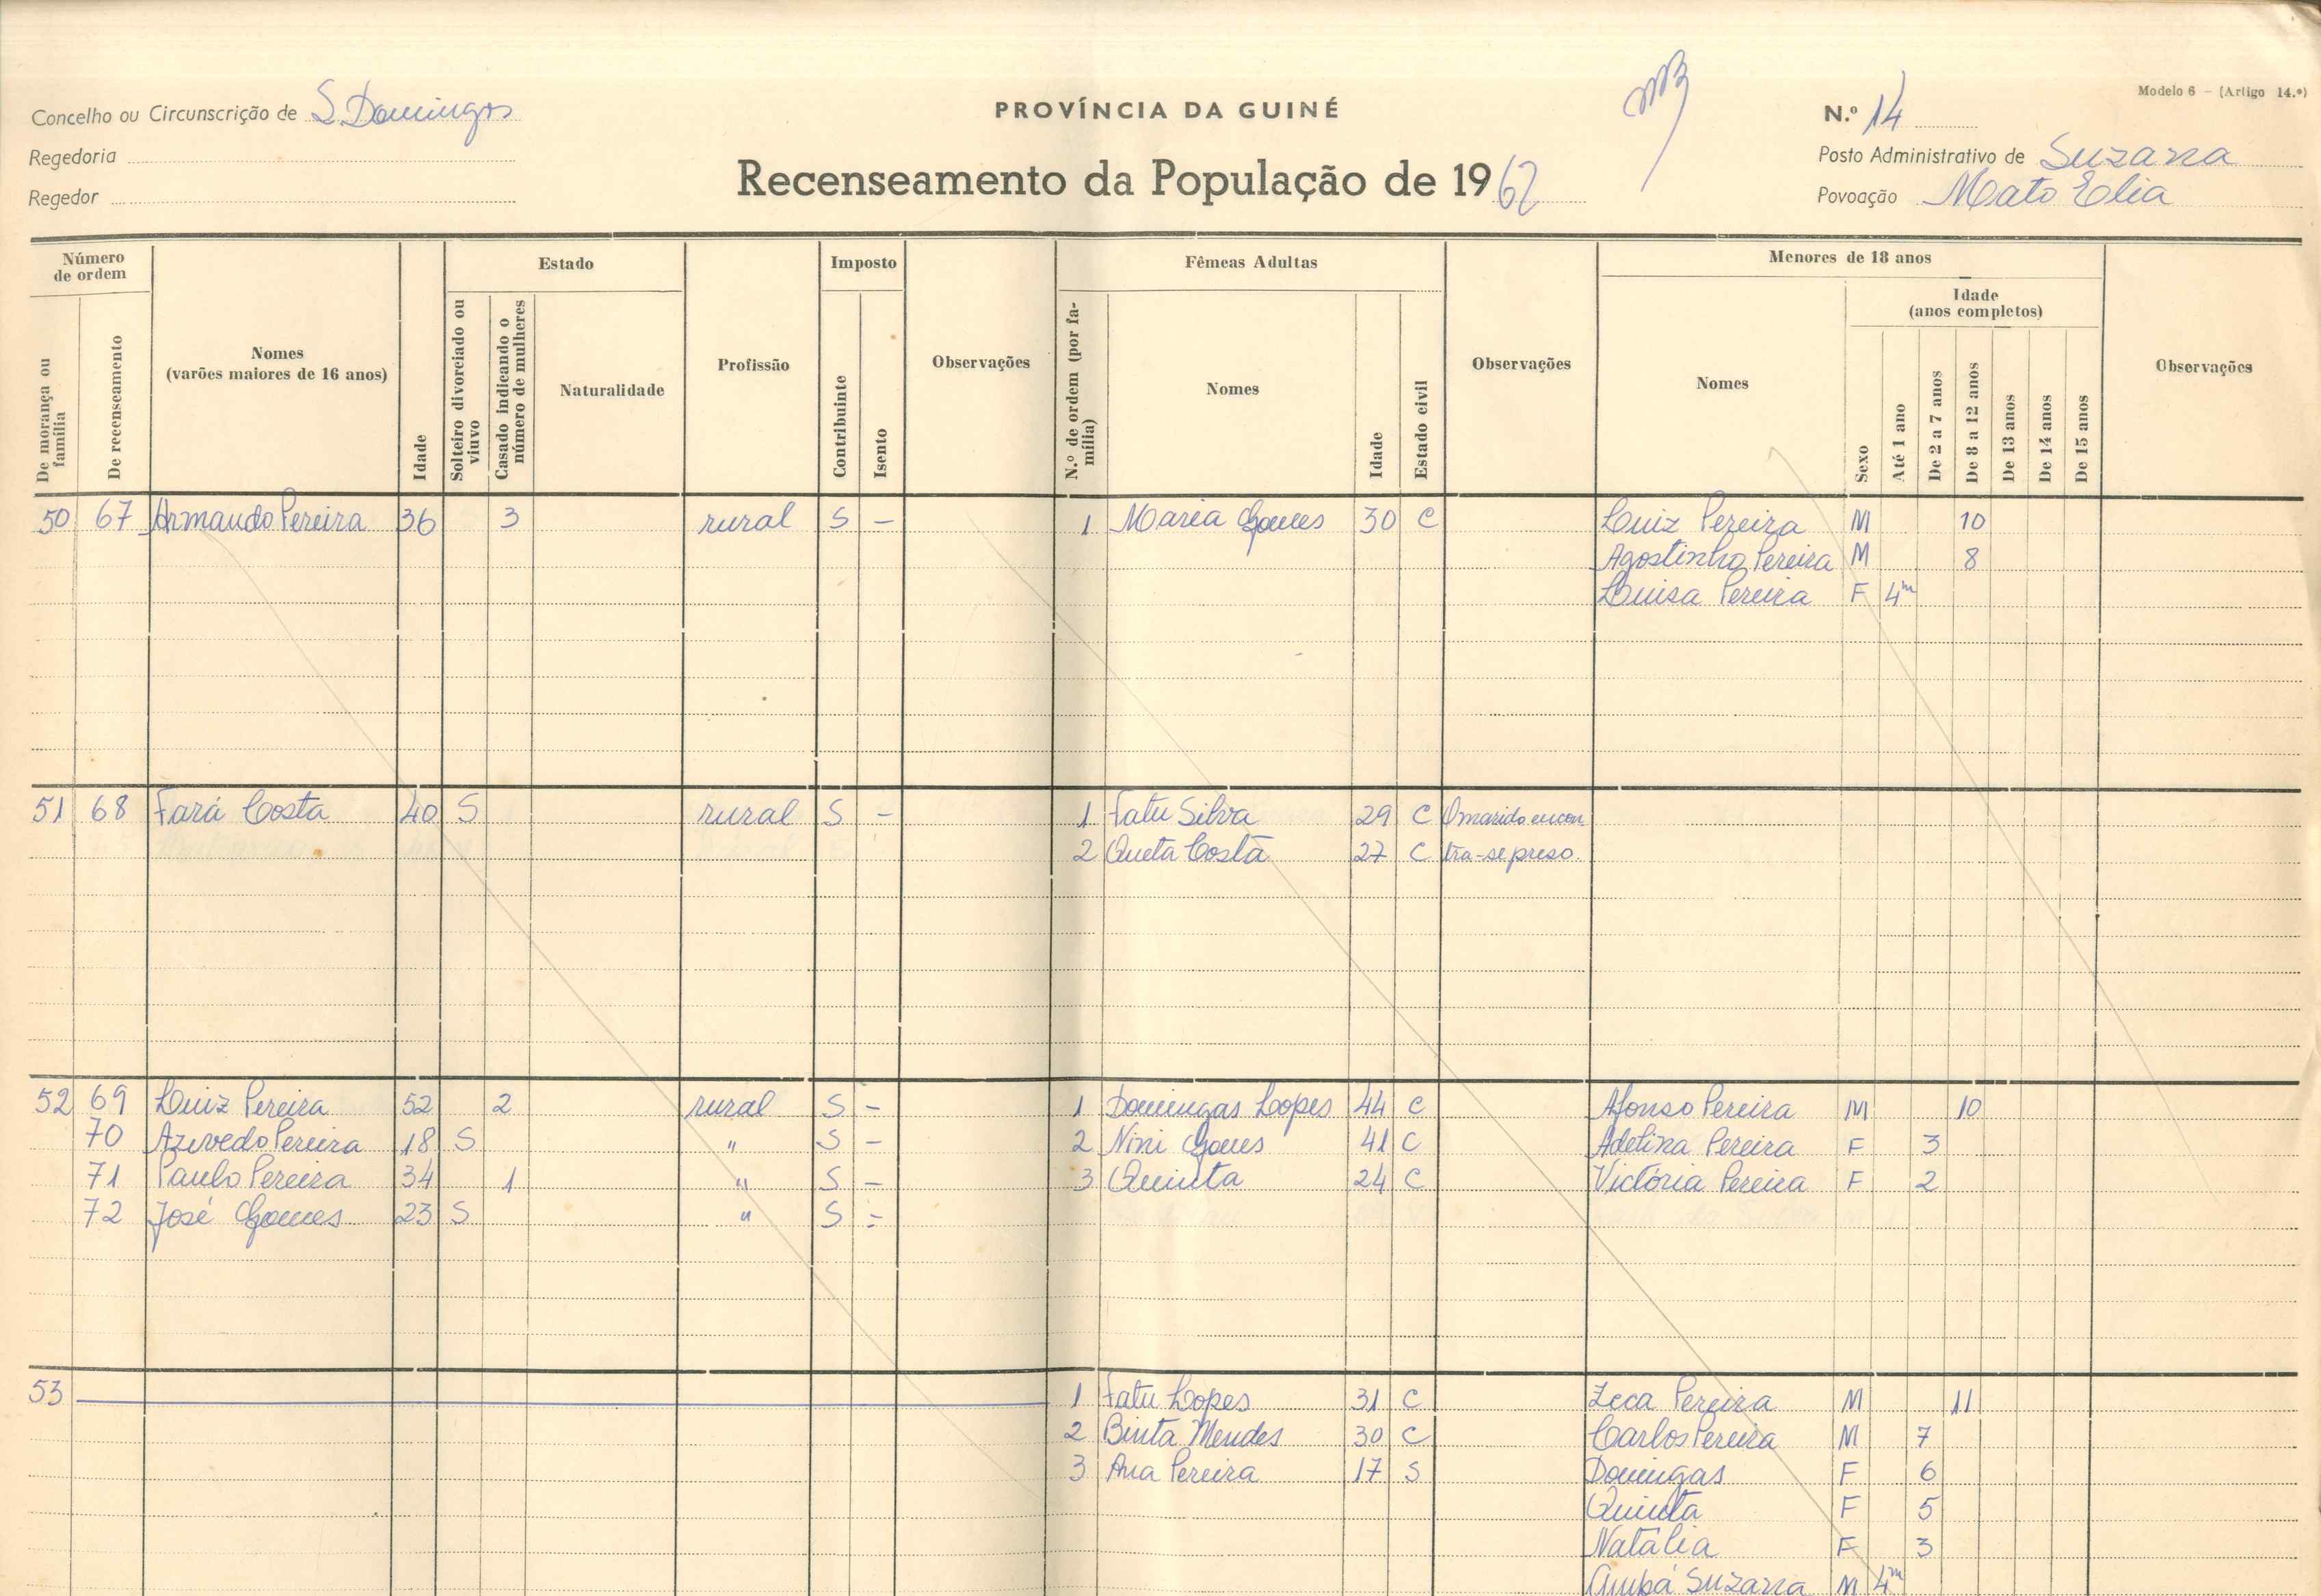 Modelo 6 - (Artigo 14.º)
Concelho ou Circunscrição de S. Domingos
PROVÍNCIA DA GUINÉ
N.º 14
Regedoria
Posto Administrativo de Suzana
Regedor
Recenseamento da População de 1962
Povoação Mato Elia
Número de ordem
Estado
Imposto
Fêmeas Adultas
Menores de 18 anos
Idade (anos completos)
De morança ou família
De recenseamento
Nomes (varões maiores de 16 anos)
Idade
Solteiro divorciado ou viuvo
Casado indicando o número de mulheres
Naturalidade
Profissão
Contribuinte
Isento
Observações
N.º de ordem (por família)
Nomes
Idade
Estado civil
Observações
Nomes
Sexo
Até 1 ano
De 2 a 7 anos
De 8 a 12 anos
De 13 anos
De 14 anos
De 15 anos
Observações
50 67 Armando Pereira 36 3 rural S - 1 Maria Gomes 30 C Luiz Pereira M 10
Agostinho Pereira M 8
Luisa Pereira F 4m
51 68 Fará Costa 40 S rural S - 1 Fatu Silva 29 C O marido encon
2 Queta Costa 27 C tra-se preso.
52 69 Luiz Pereira 52 2 rural S - 1 Domingas Lopes 44 C Afonso Pereira M 10
70 Azevedo Pereira 18 S " S - 2 Nini Gomes 41 C Adelina Pereira F 3
71 Paulo Pereira 34 1 " S - 3 Quinta 24 C Victória Pereira F 2
72 José Gomes 23 S " S -
53 1 Fatu Lopes 31 C Zeca Pereira M 11
2 Binta Mendes 30 C Carlos Pereira M 7
3 Ana Pereira 17 S Domingas F 6
Quinta F 5
Natália F 3
Suzana M 4m